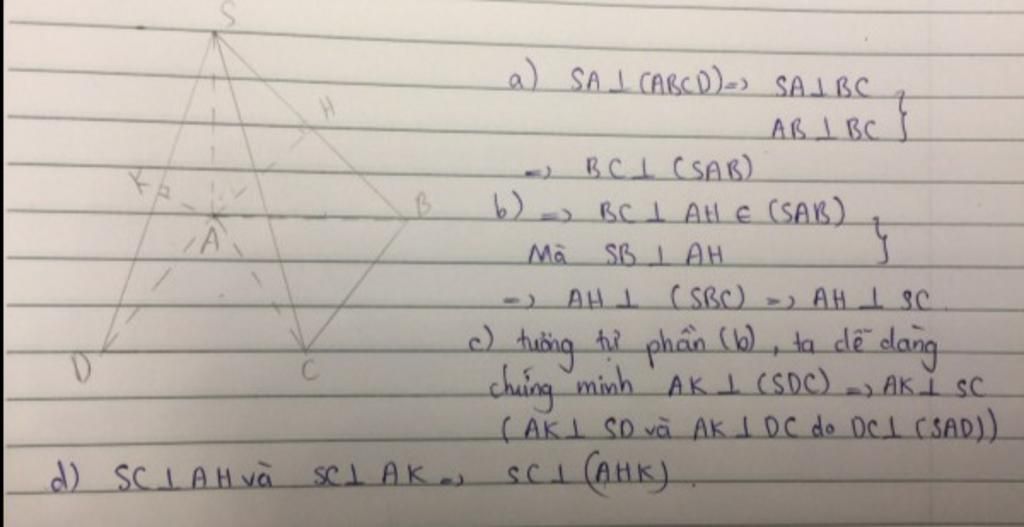 S
a) SA ⊥ (ABCD) => SA ⊥ BC
H
AB ⊥ BC }
=> BC ⊥ (SAB)
K
B
b) => BC ⊥ AH ∈ (SAB)
A
Mà SB ⊥ AH }
=> AH ⊥ (SBC) => AH ⊥ SC
c) tường tự phần (b), ta dễ dàng
D
C
chứng minh AK ⊥ (SDC) => AK ⊥ SC
(AK ⊥ SD và AK ⊥ DC do DC ⊥ (SAD))
d) SC ⊥ AH và SC ⊥ AK => SC ⊥ (AHK).